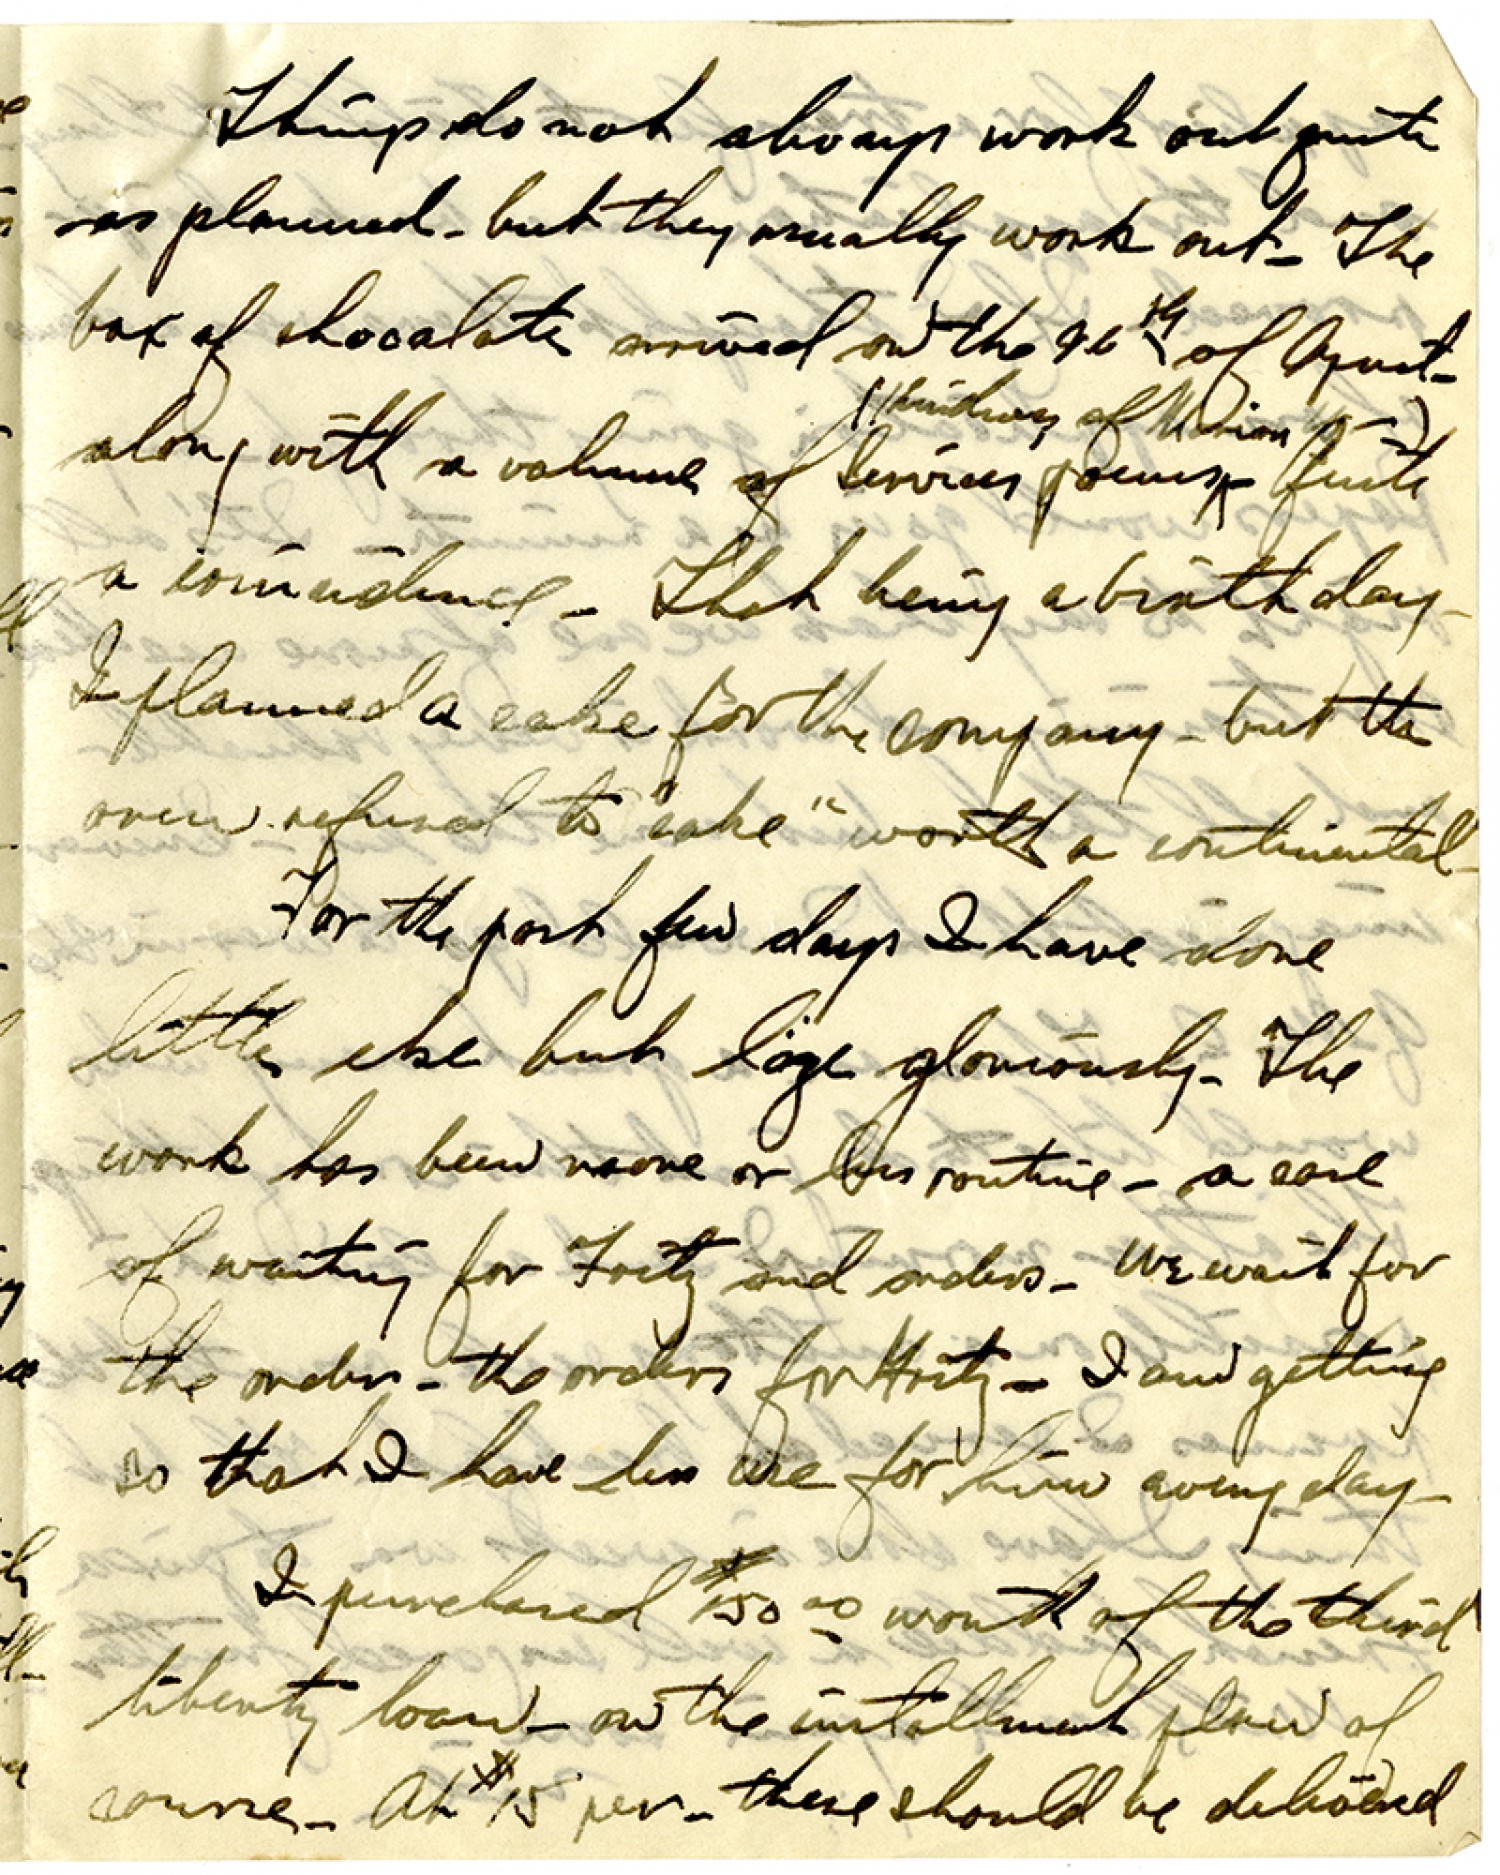 Things do not always work out quite
as planned - but they usually work out - The
box of chocolate arrived on the 26th of April -
of
along with a volume of Services poems - Quite
a coincidence - That being a birth day -
I planned a cake for the company - but the
oven refused to "cake" worth a continental -
For the past few days I have done
little else but loge gloriously - The
work has been more or less routine - a case
of waiting for Fritz and orders - We wait for
the orders - the orders for Fritz - I am getting
so that I have less use for him every day -
I purchased $150 00 worth of the third
liberty loan - on the installment plan of
course - At $15 per - these should be delivered